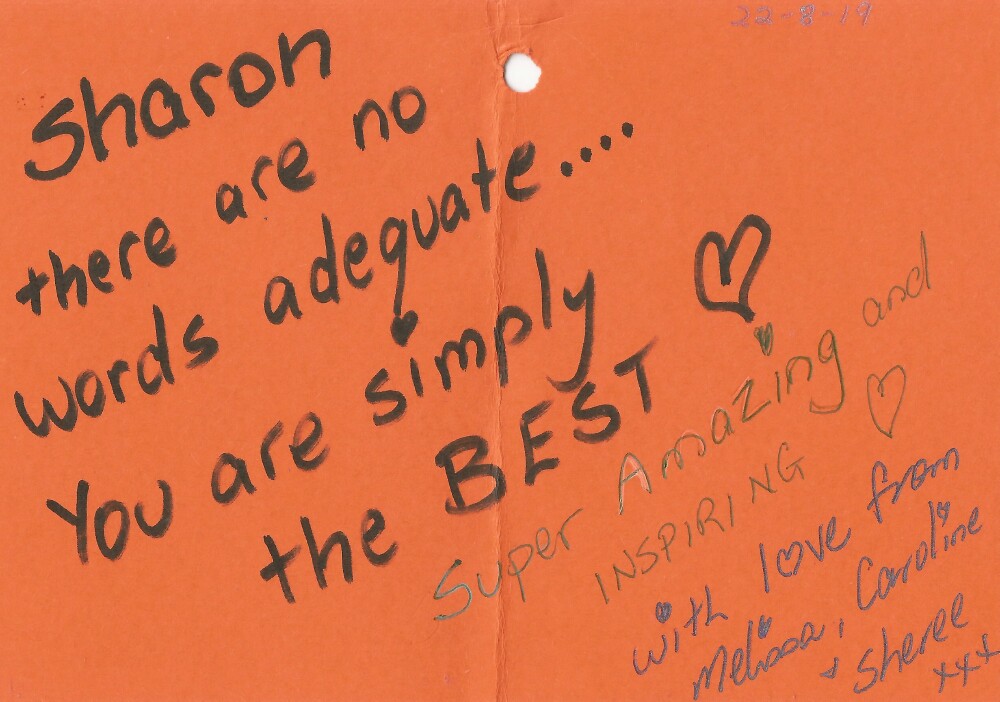 22-8-19
Sharon
there are no
words adequate....
You are simply ♡
the BEST
Super Amazing and
INSPIRING ♡
with love from
Melissa, Caroline
+ Sheree
xxx